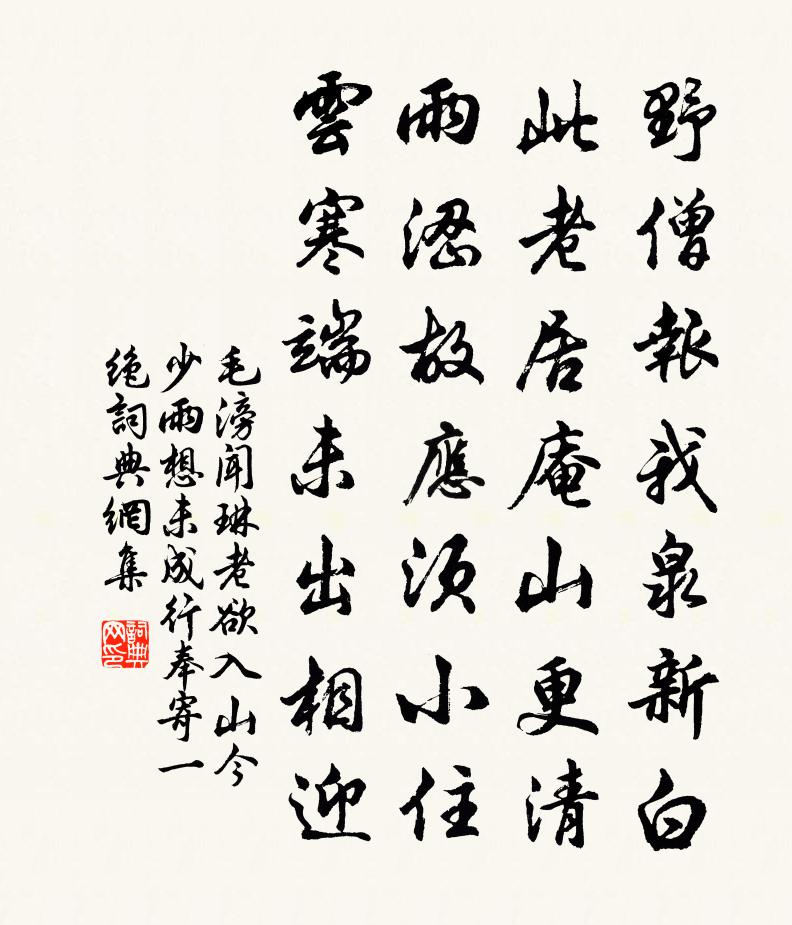 野僧報我泉新白
此老居庵山更清
雨澀故應須小住
雲寒端未出相迎
毛滂聞琳老欲入山今
少雨想未成行奉寄一
絶詞典網集
詞典網印